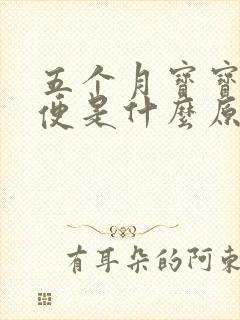 五个月寶寶
便是什麽原
有耳朵的阿東